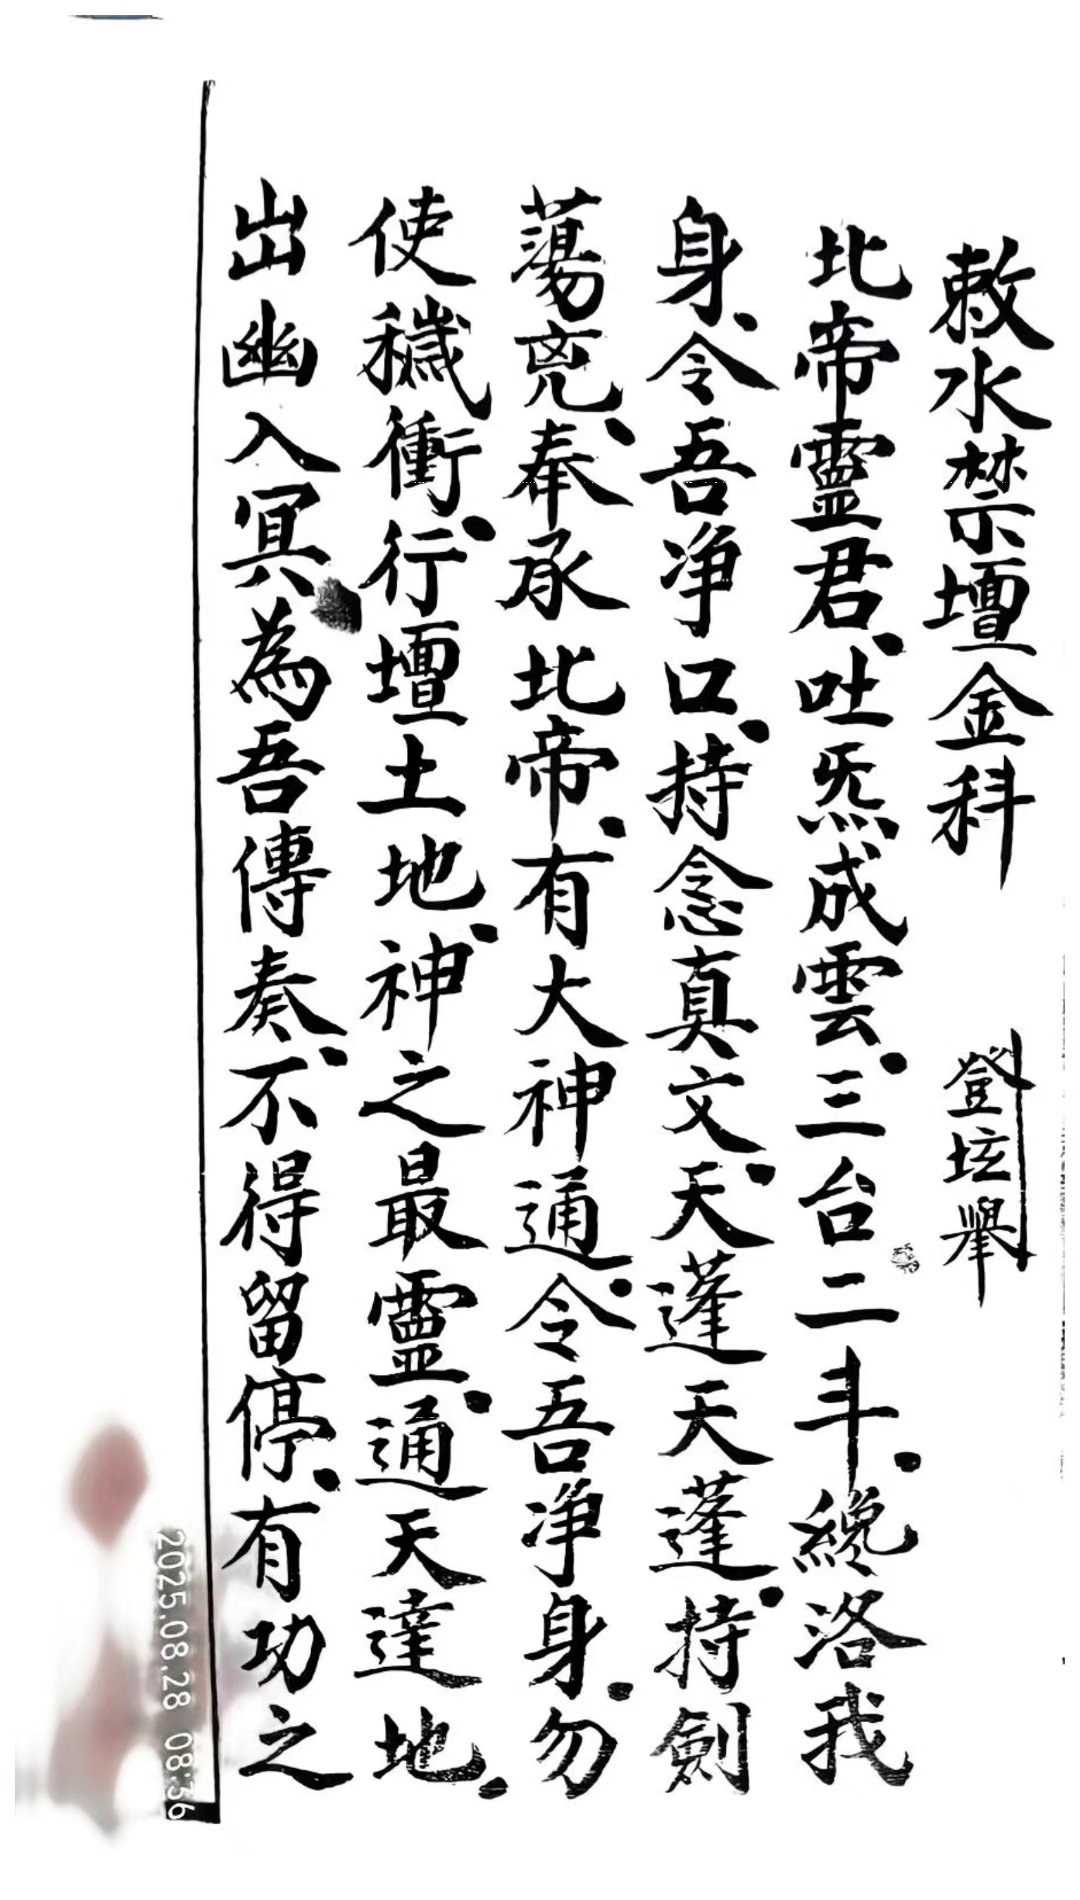 敕水禁壇金科　登坛舉
北帝靈君、吐炁成雲、三台二斗、纔洛我
身、令吾净口、持念真文、天蓬天蓬、持劍
蕩兇、奉承北帝、有大神通、令吾净身、勿
使穢衝、行壇土地、神之最靈、通天達地、
出幽入冥、為吾傳奏、不得留停、有功之
2025.08.28 08:56